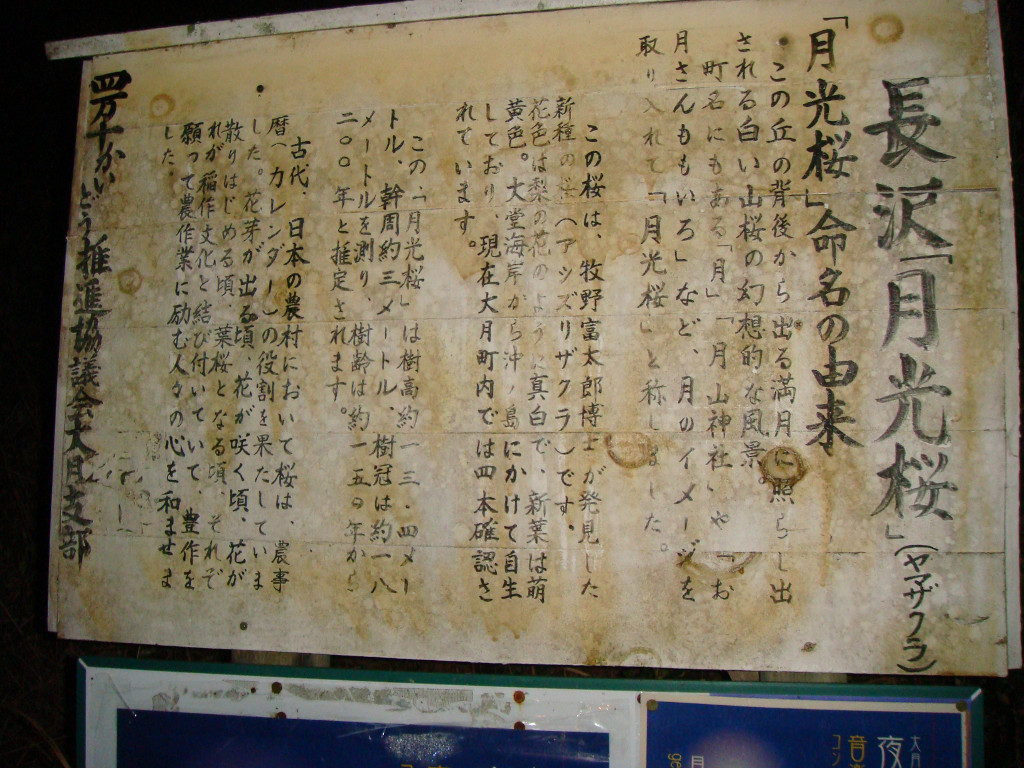 長沢「月光桜」(ヤマザクラ)
「月光桜」命名の由来
・この丘の背後から出る満月に照らし出
される白い山桜の幻想的な風景。
町名にもある「月」「月山神社」や「お
月さんももいろ」など、月のイメージを
取り入れて「月光桜」と称しました。
この桜は、牧野富太郎博士が発見した
新種の桜(アシズリザクラ)です。
花色は梨の花のように真白で、新葉は萌
黄色。大堂海岸から沖ノ島にかけて自生
しており、現在大月町内では四本確認さ
れています。
この「月光桜」は樹高約一三・四メー
トル、幹周約三メートル、樹冠は約一八
メートルを測り、樹齢は約一五〇年から
二〇〇年と推定されます。
古代、日本の農村において桜は、農事
暦(カレンダー)の役割を果たしていま
した。花芽が出る頃、花が咲く頃、花が
散りはじめる頃、葉桜となる頃、それぞ
れが稲作文化と結び付いていて、豊作を
願って農作業に励む人々の心を和ませま
した。
四万十かいどう推進協議会大月支部
夜
音
月